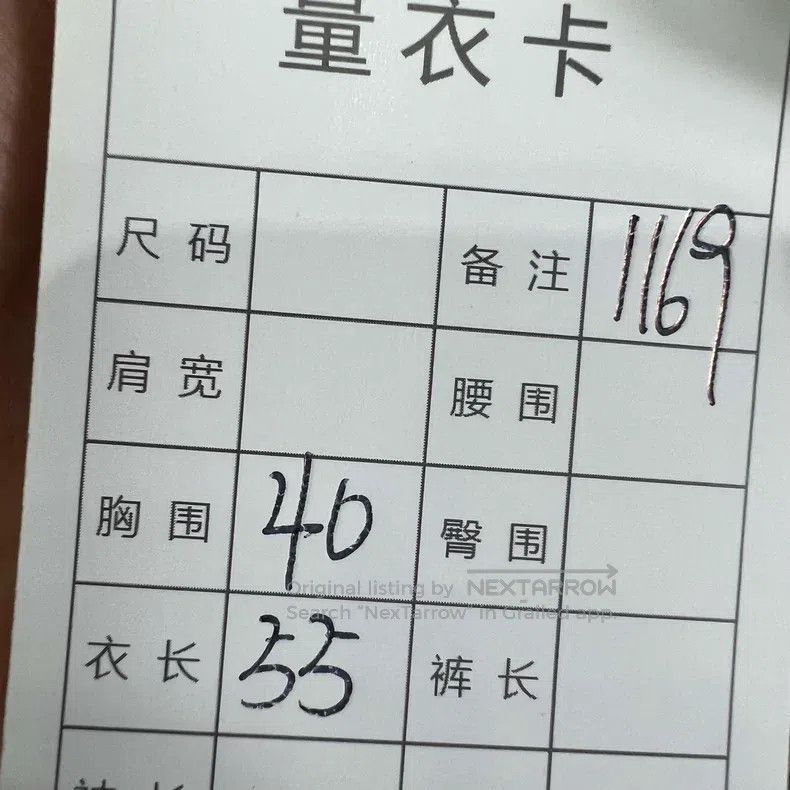 量衣卡
尺码 备注 1169
肩宽 腰围
胸围 40 臀围
Original listing by NEXTARROW
Search "NexTarrow" in Grailed app.
衣长 55 裤长